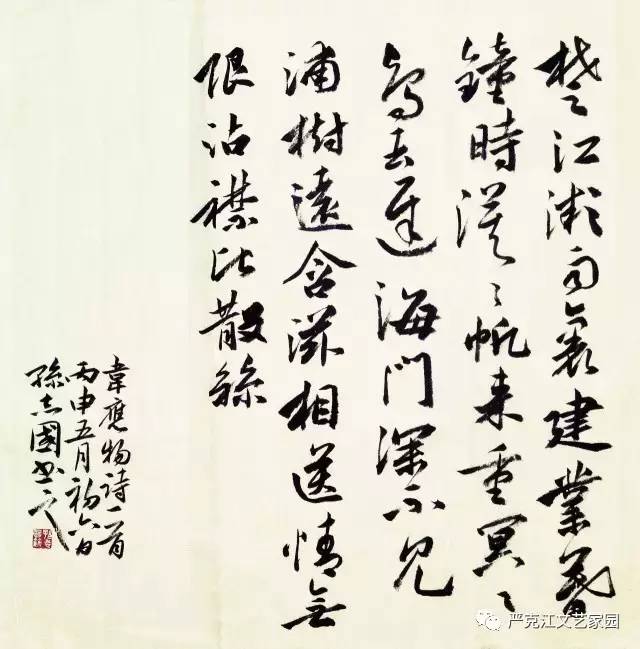 楚江微雨裏建業暮
鐘時漠〻帆来重冥〻
鳥去遲海門深不見
浦樹遠含滋相送情無
限沾襟比散絲
韋應物詩一首
丙申五月初六日
孫志國書之
严克江文艺家园